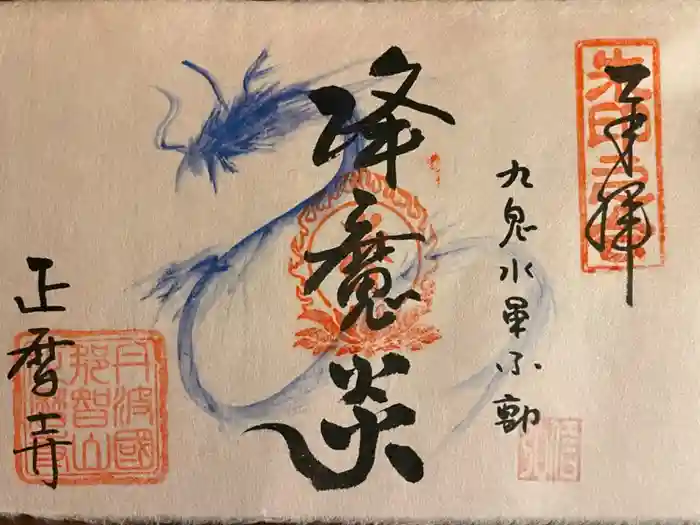 奉拝
九鬼水軍不動
降魔炎
正暦寺
丹波國
那智山
正暦寺